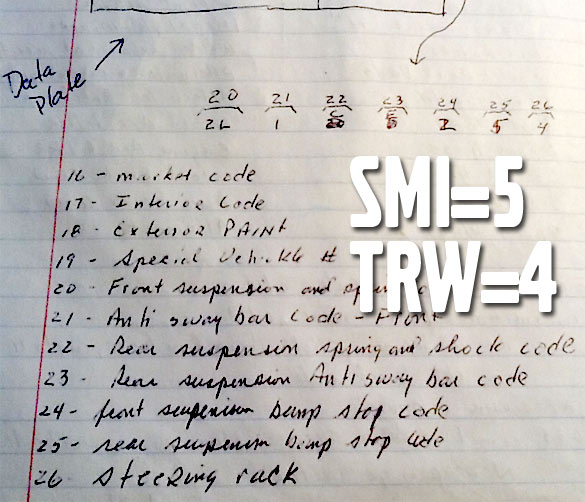 Data
Plate
20 21 22 23 24 25 26
1 4
16 - market code
17 - Interior Code
18 - Exterior PAINT
19 - Special Vehicle #
20 - Front suspension and
21 - Anti sway bar Code - Front
22 - Rear suspension spring and shock code
23 - Rear suspension Anti sway bar code
24 - front suspension bump stop code
25 - rear suspension bump stop code
26 steering rack
SMI=5
TRW=4